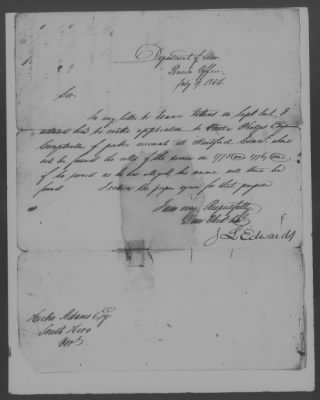 Department of War
Pension Office
July 9, 1844
Sir,
In my letter to Isaac on Sept last, I
advised him to make application to Phelps Esq
Comptroller of public accounts at Hartford Conn. where
will be found the rolls of the service in 1775 and 1776, and
if he served as he has alleged his name will there be
found. I return the paper given for that purpose
I am very Respectfully
Your Obt. Svt.
J L Edwards
Hector Adams Esq
South Hero
Vert